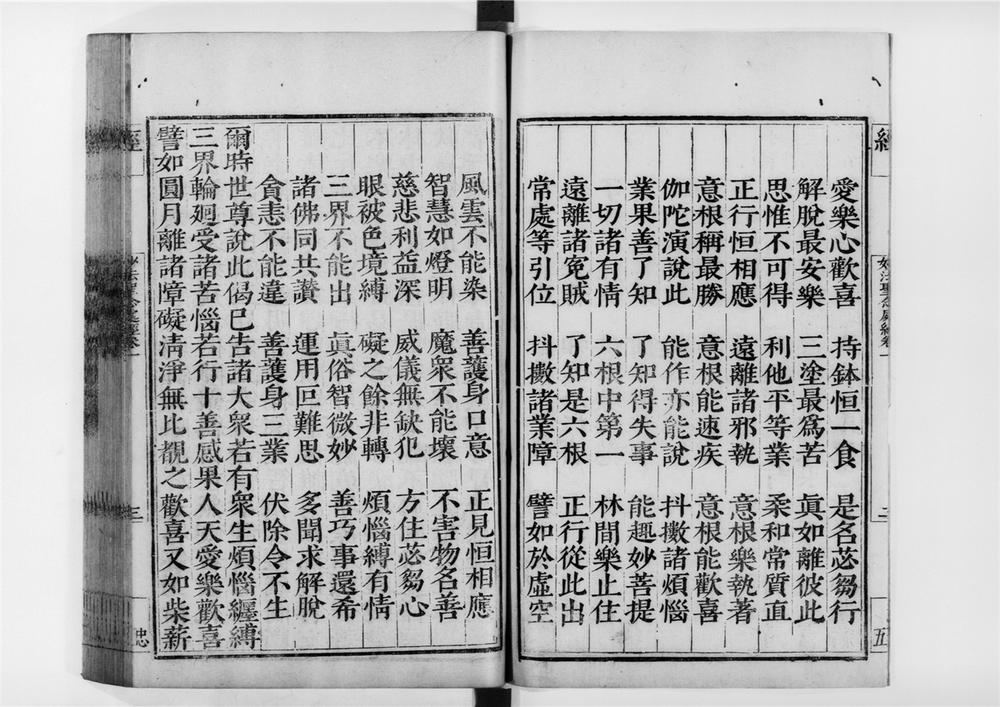 愛樂心歡喜　持鉢恒一食　是名苾芻行
解脫最安樂　三塗最爲苦　眞如離彼此
思惟不可得　利他平等業　柔和常質直
正行恒相應　遠離諸邪執　意根樂執著
意根稱最勝　意根能速疾　意根能歡喜
伽陀演說此　能作亦能說　抖擻諸煩惱
業果善了知　了知得失事　能趣妙菩提
一切諸有情　六根中第一　林間樂止住
遠離諸冤賊　了知是六根　正行從此出
常處等引位　抖擻諸業障　譬如於虛空
風雲不能染　善護身口意　正見恒相應
智慧如燈明　魔衆不能壞　不害物名善
慈悲利益深　威儀無缺犯　方住苾芻心
眼被色境縛　礙之餘非轉　煩惱縛有情
三界不能出　眞俗智微妙　善巧事還希
諸佛同共讚　運用叵難思　多聞求解脫
貪恚不能違　善護身三業　伏除令不生
爾時世尊說此偈已告諸大衆若有衆生煩惱纏縛
三界輪廻受諸苦惱若行十善感果人天愛樂歡喜
譬如圓月離諸障礙淸淨無比覩之歡喜又如柴薪
妙法聖念處經卷一
三
忠